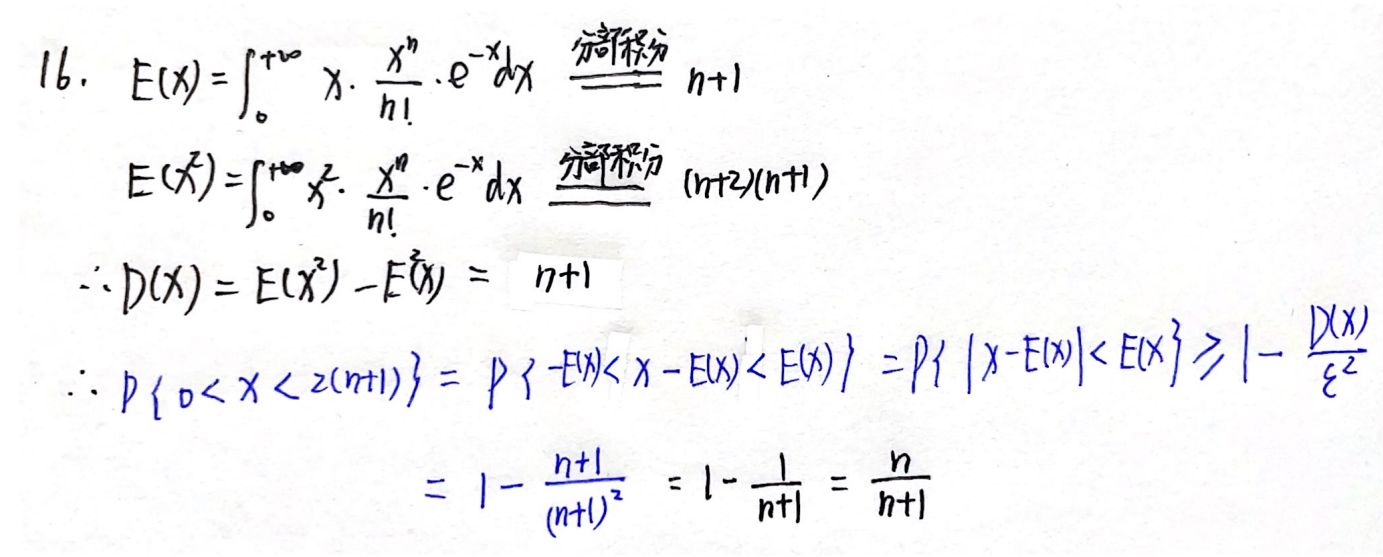 16. E(X) = ∫₀^{+∞} x · \frac{x^n}{n!} · e^{-x}dx \xlongequal{分部积分} n+1
E(X²) = ∫₀^{+∞} x² · \frac{x^n}{n!} · e^{-x}dx \xlongequal{分部积分} (n+2)(n+1)
∴ D(X) = E(X²) - E²(X) = n+1
∴ P{0 < X < 2(n+1)} = P{-E(X) < X - E(X) < E(X)} = P{|X-E(X)| < E(X} ≥ 1 - \frac{D(X)}{ε²}
= 1 - \frac{n+1}{(n+1)²} = 1 - \frac{1}{n+1} = \frac{n}{n+1}